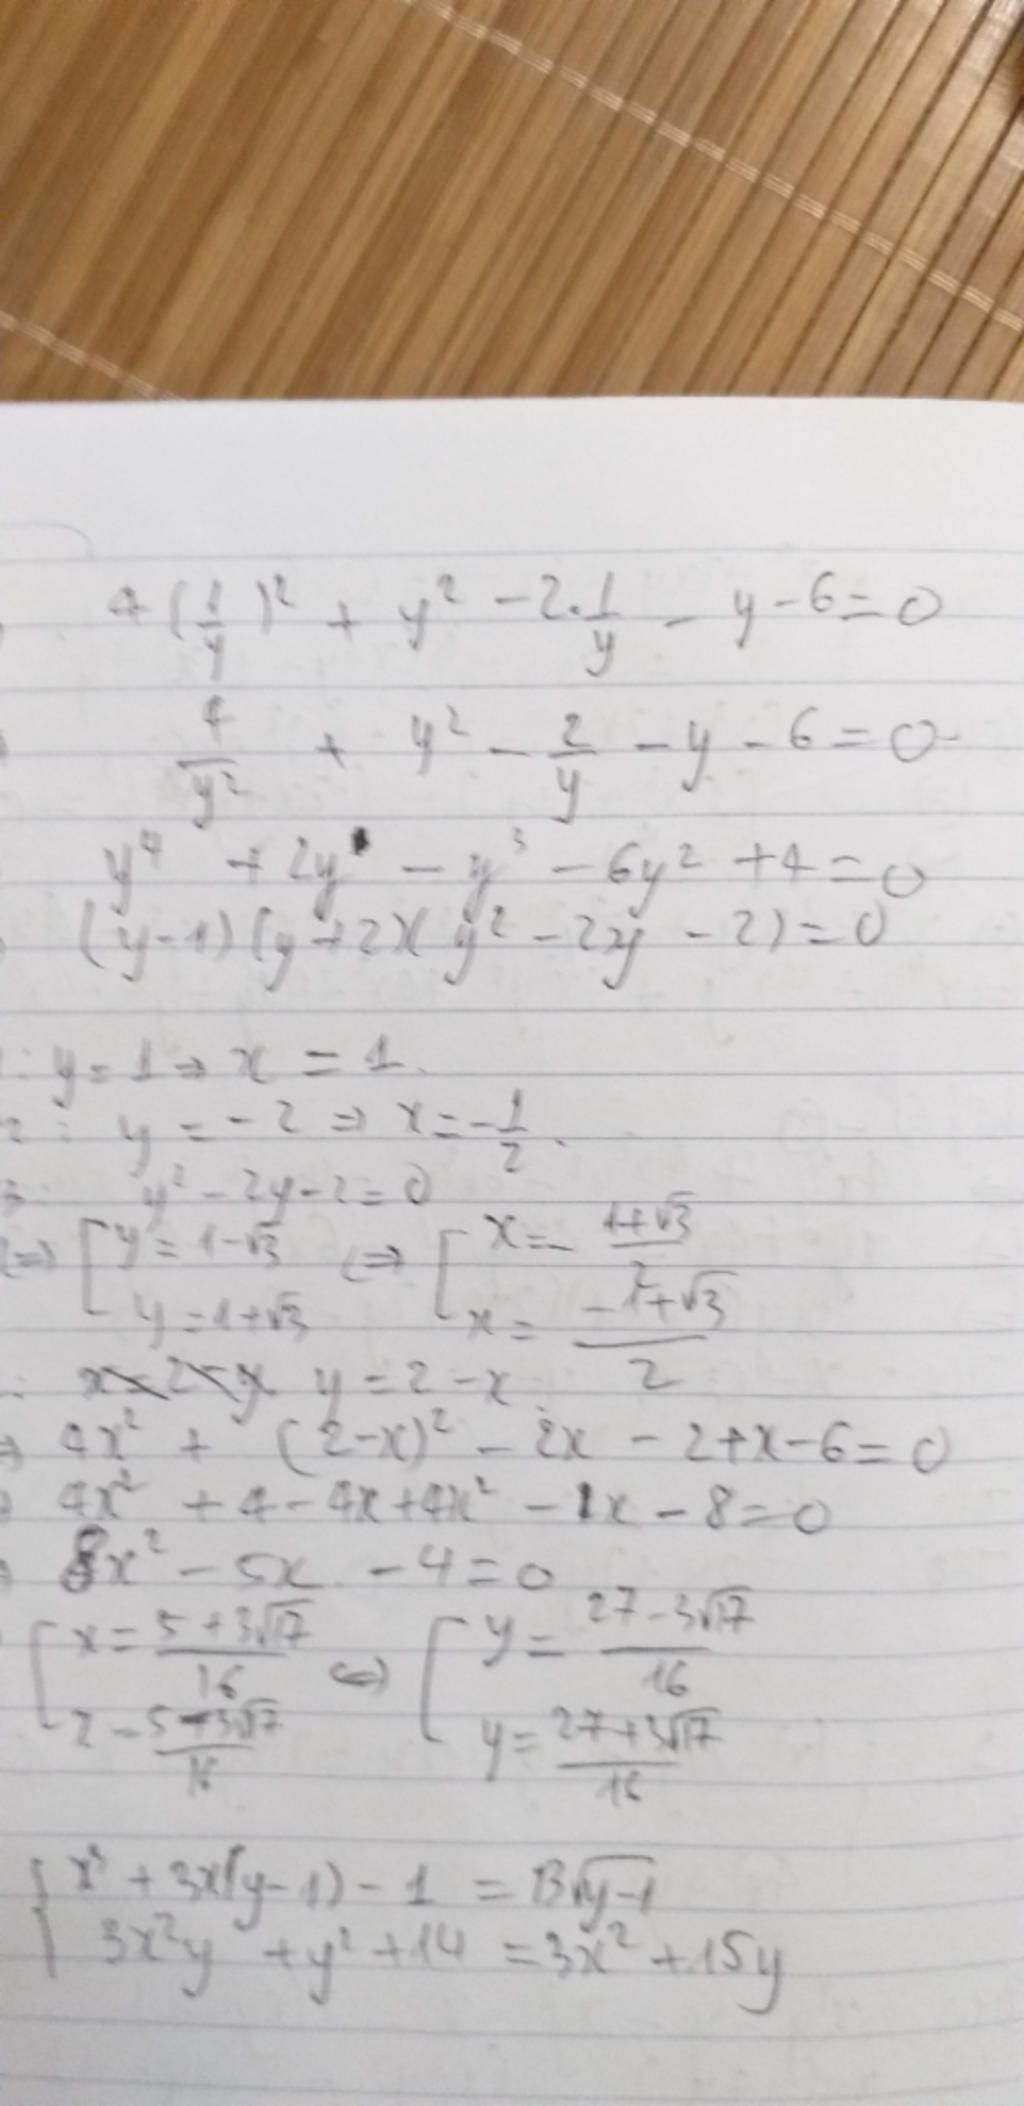 4(1/y)² + y² - 2.1/y - y - 6 = 0
4/y² + y² - 2/y - y - 6 = 0
y⁴ + 2y - y³ - 6y² + 4 = 0
(y-1)(y+2)(y² - 2y - 2) = 0
1: y = 1 ⇒ x = 1.
2: y = -2 ⇒ x = -1/2.
3: y² - 2y - 2 = 0
(⇒) [ y = 1-√3 (⇒ [ x = - 1+√3/2
y = 1+√3 x = -1+√3/2
: y = 2 - x
⇒ 4x² + (2-x)² - 2x - 2 + x - 6 = 0
4x² + 4 - 4x + 4x² - 1x - 8 = 0
8x² - 5x - 4 = 0
[ x = 5+3√17/16 (⇒) [ y = 27-3√17/16
5-3√17/16 y = 27+3√17/16
{ + 3x(y-1) - 1 = 13√y-1
3x²y + y² + 14 = 3x² + 15y